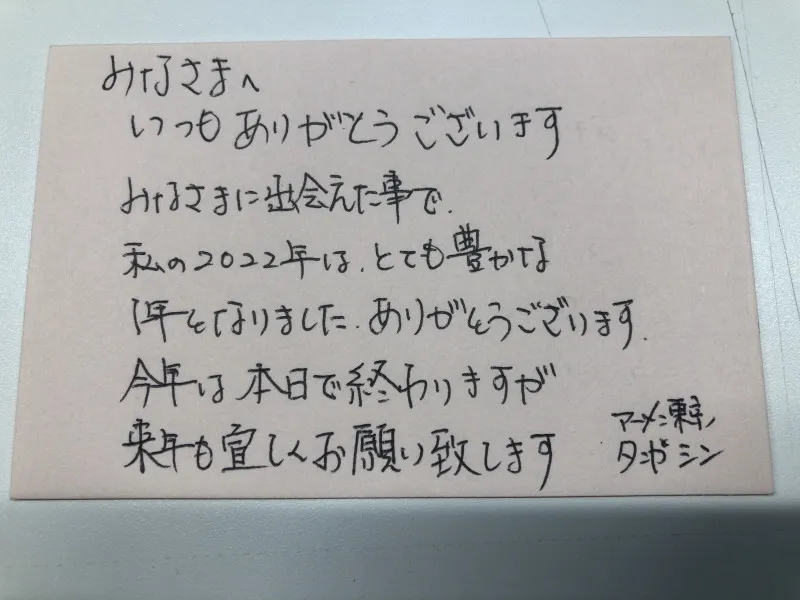 みなさまへ
いつもありがとうございます
みなさまに出会えた事で、
私の2022年は、とても豊かな
1年となりました。ありがとうございます。
今年は本日で終わりますが
来年も宜しくお願い致します
アーメン東京
タンヤ シン